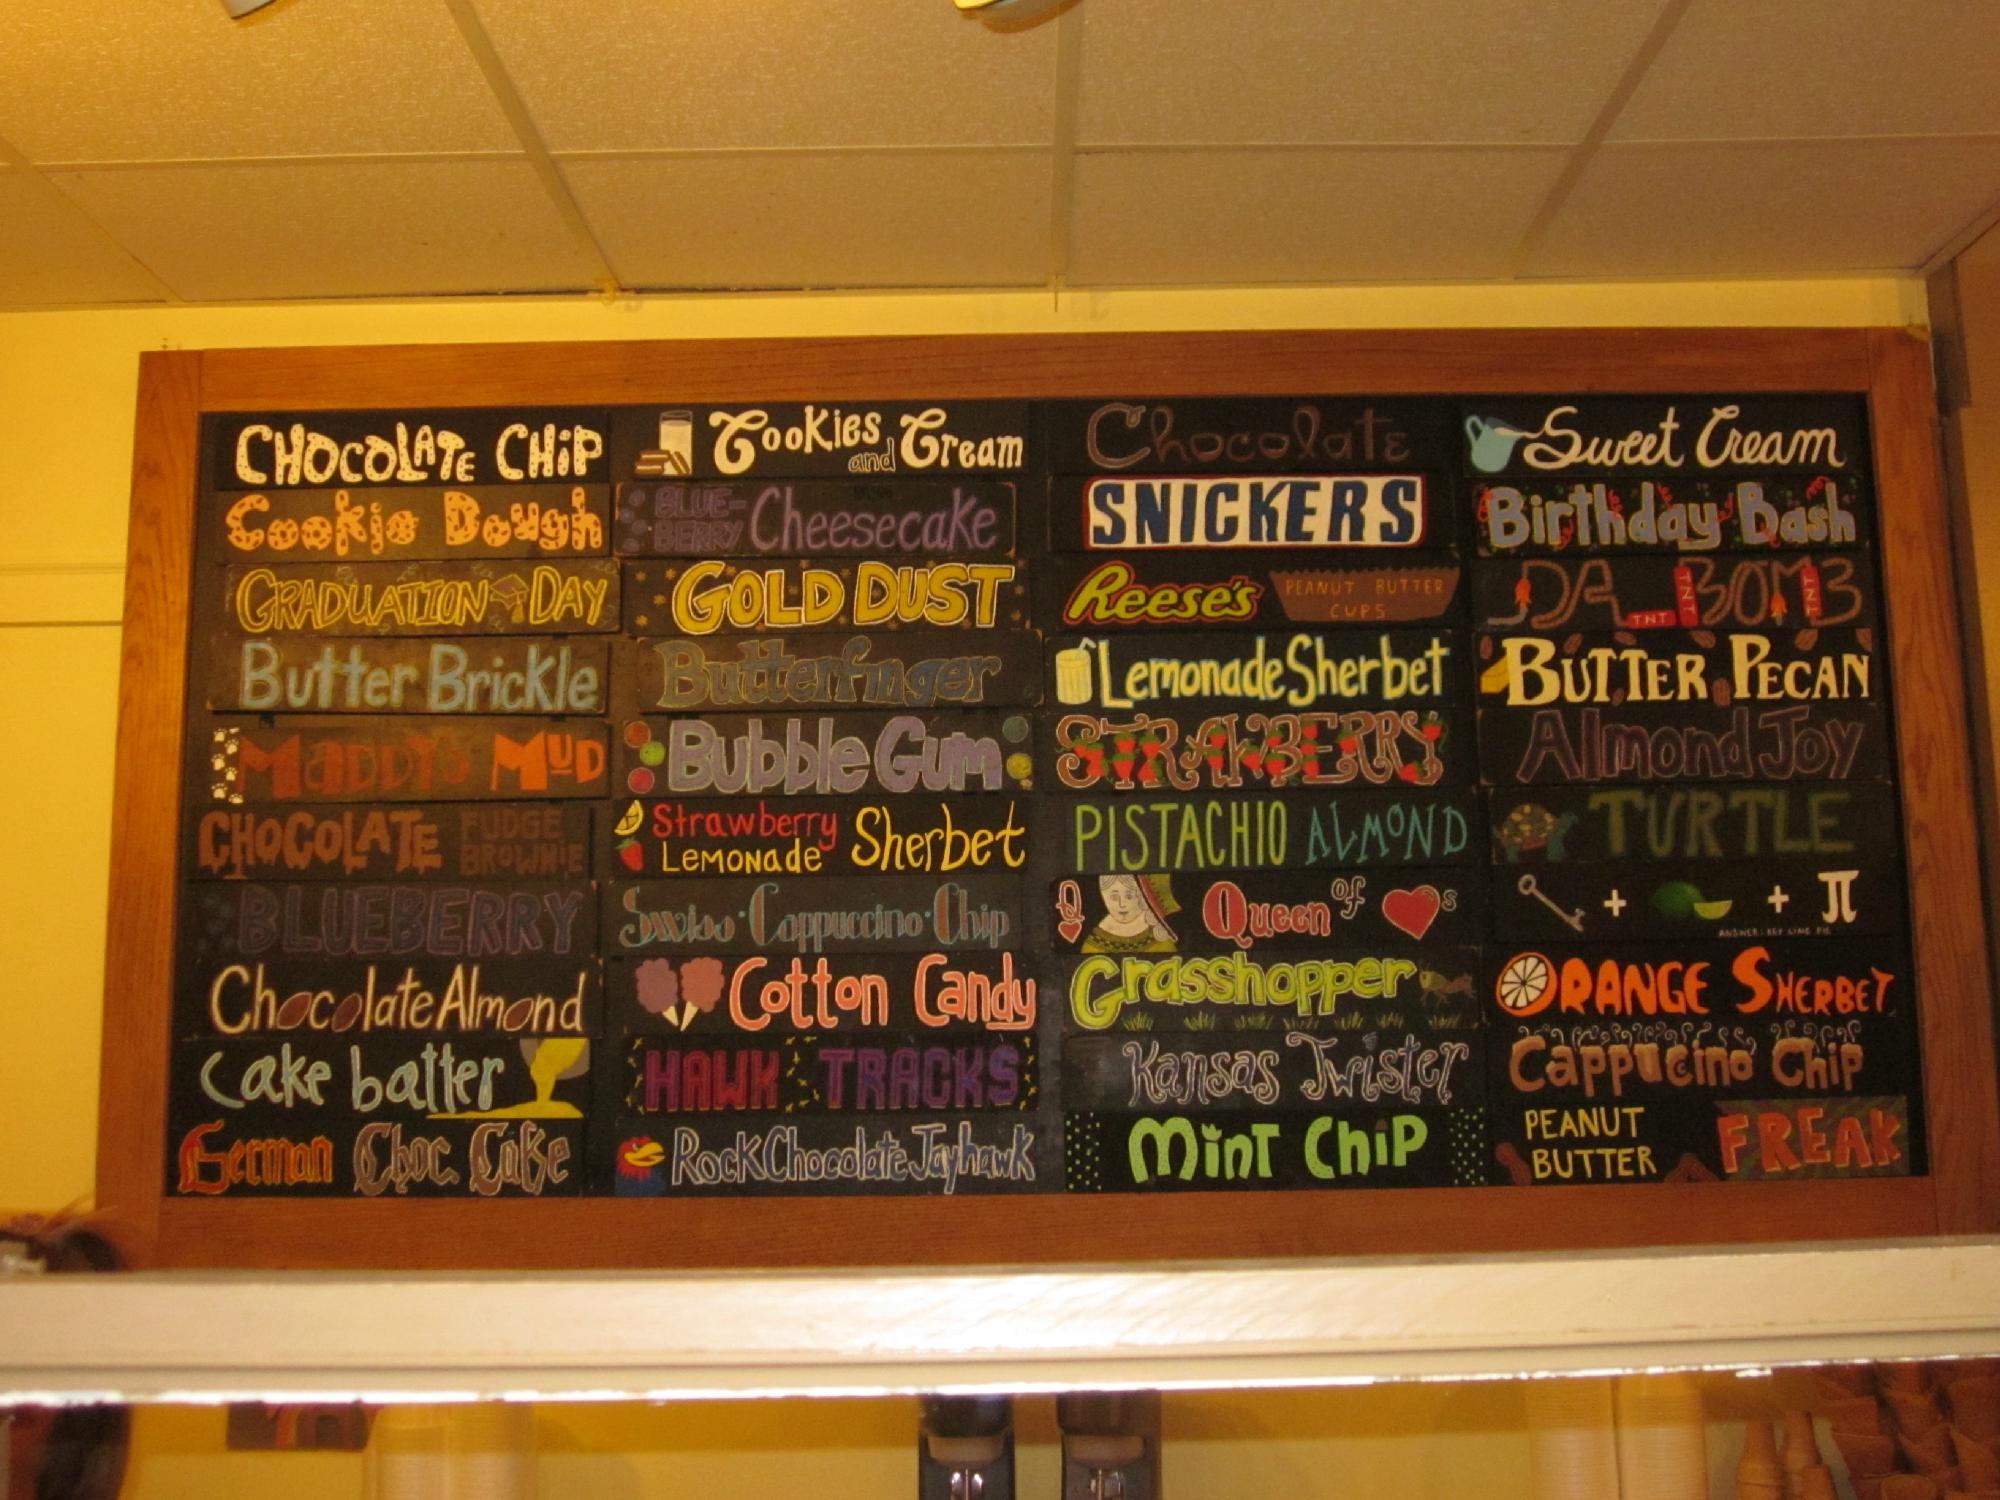 CHOCOLATE CHIP
Cookie Dough
GRADUATION DAY
Butter Brickle
Maddy's Mud
CHOCOLATE FUDGE BROWNIE
BLUEBERRY
Chocolate Almond
Cake batter
German Choc. Cake
Cookies and Cream
BLUE-
BERRY Cheesecake
GOLD DUST
Butterfinger
Bubble Gum
Strawberry
Lemonade Sherbet
Swiss·Cappuccino·Chip
Cotton Candy
HAWK TRACKS
Rock Chocolate Jayhawk
Chocolate
SNICKERS
Reese's PEANUT BUTTER
CUPS
Lemonade Sherbet
STRAWBERRY
PISTACHIO ALMOND
Q Queen of s
Grasshopper
Kansas Twister
Mint Chip
Sweet Cream
Birthday Bash
DA BOMB
TNT TNT TNT
BUTTER PECAN
Almond Joy
TURTLE
+ + π
ANSWER: KEY LIME PIE
ORANGE SHERBET
Cappuccino Chip
PEANUT
BUTTER FREAK